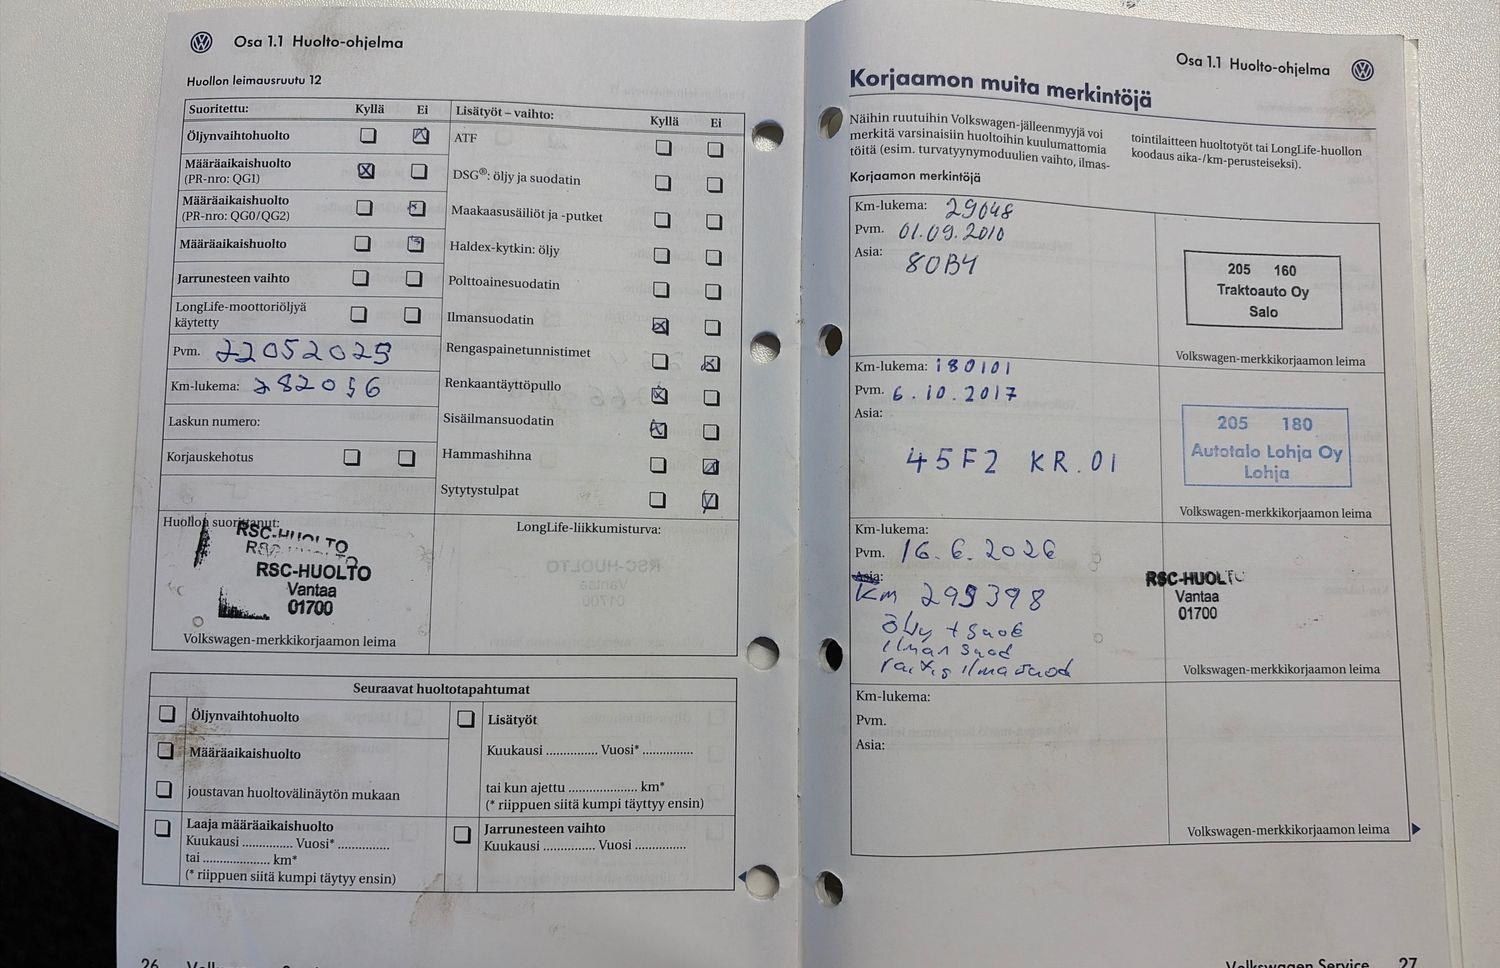 Osa 1.1 Huolto-ohjelma
Huollon leimausruutu 12
Suoritettu: Kyllä Ei
Öljynvaihtohuolto
Määräaikaishuolto
(PR-nro: QG1)
Määräaikaishuolto
(PR-nro: QG0/QG2)
Määräaikaishuolto
Jarrunesteen vaihto
LongLife-moottoriöljyä
käytetty
Pvm. 22052025
Km-lukema: 282056
Laskun numero:
Korjauskehotus
Huollon suorittanut:
RSC-HUOLTO
RSC-HUOLTO
Vantaa
01700
Volkswagen-merkkikorjaamon leima
Lisätyöt – vaihto: Kyllä Ei
ATF
DSG®: öljy ja suodatin
Maakaasusäiliöt ja -putket
Haldex-kytkin: öljy
Polttoainesuodatin
Ilmansuodatin
Rengaspainetunnistimet
Renkaantäyttöpullo
Sisäilmansuodatin
Hammashihna
Sytytystulpat
LongLife-liikkumisturva:
Seuraavat huoltotapahtumat
Öljynvaihtohuolto
Määräaikaishuolto
joustavan huoltovälinäytön mukaan
Laaja määräaikaishuolto
Kuukausi .............. Vuosi* ..............
tai .................... km*
(* riippuen siitä kumpi täytyy ensin)
Lisätyöt
Kuukausi .............. Vuosi* ..............
tai kun ajettu .................... km*
(* riippuen siitä kumpi täyttyy ensin)
Jarrunesteen vaihto
Kuukausi .............. Vuosi ..............
26
Osa 1.1 Huolto-ohjelma
Korjaamon muita merkintöjä
Näihin ruutuihin Volkswagen-jälleenmyyjä voi
merkitä varsinaisiin huoltoihin kuulumattomia
töitä (esim. turvatyynymoduulien vaihto, ilmas-
tointilaitteen huoltotyöt tai LongLife-huollon
koodaus aika-/km-perusteiseksi).
Korjaamon merkintöjä
Km-lukema: 29048
Pvm. 01.09.2010
Asia:
80B4
205 160
Traktoauto Oy
Salo
Volkswagen-merkkikorjaamon leima
Km-lukema: 180101
Pvm. 6.10.2017
Asia:
45F2 KR.01
205 180
Autotalo Lohja Oy
Lohja
Volkswagen-merkkikorjaamon leima
Km-lukema:
Pvm. 16.6.2026
Asia:
Km 299398
öljy + suod
ilman suod
raitis ilmasuod
RSC-HUOLTO
Vantaa
01700
Volkswagen-merkkikorjaamon leima
Km-lukema:
Pvm.
Asia:
Volkswagen-merkkikorjaamon leima
Volkswagen Service 27